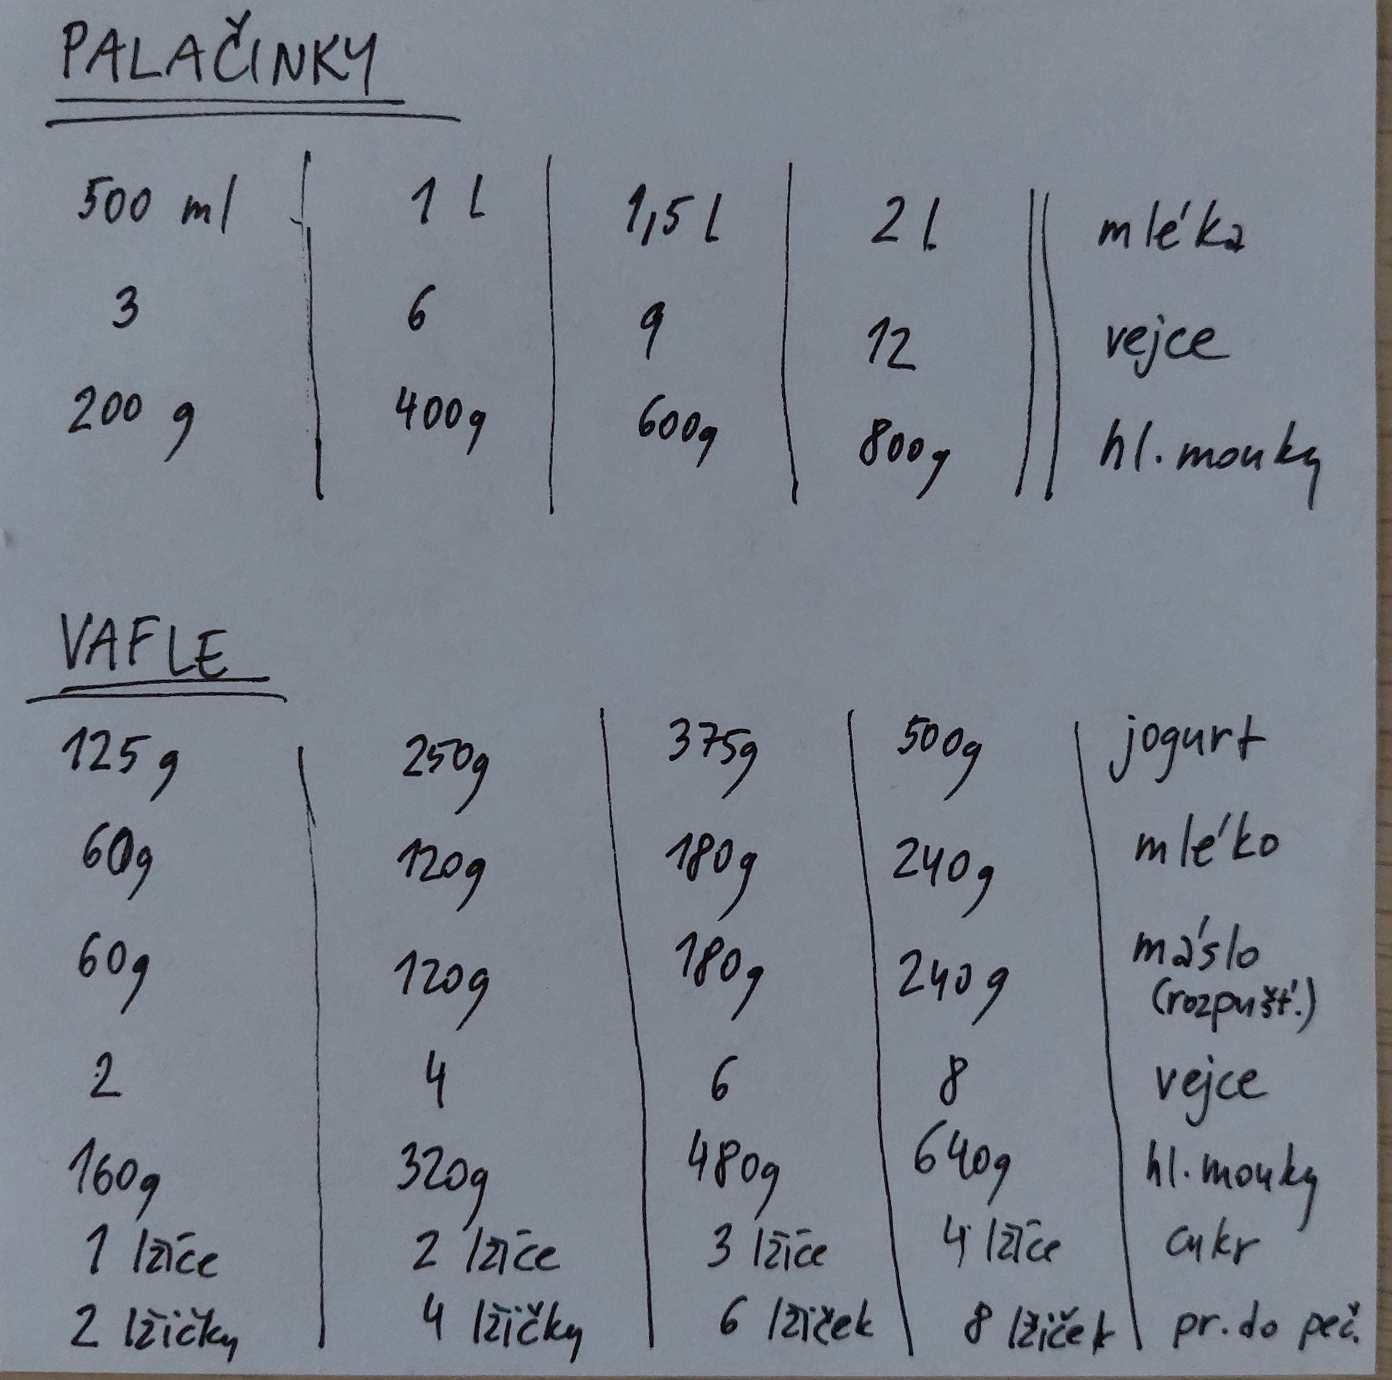 PALAČINKY
500 ml 1 l 1,5 l 2 l mléka
3 6 9 12 vejce
200 g 400g 600g 800g hl. mouky
VAFLE
125g 250g 375g 500g jogurt
60g 120g 180g 240g mléko
60g 120g 180g 240g máslo
(rozpušť.)
2 4 6 8 vejce
160g 320g 480g 640g hl. mouky
1 lžíce 2 lžíce 3 lžíce 4 lžíce cukr
2 lžičky 4 lžičky 6 lžiček 8 lžiček pr. do peč.